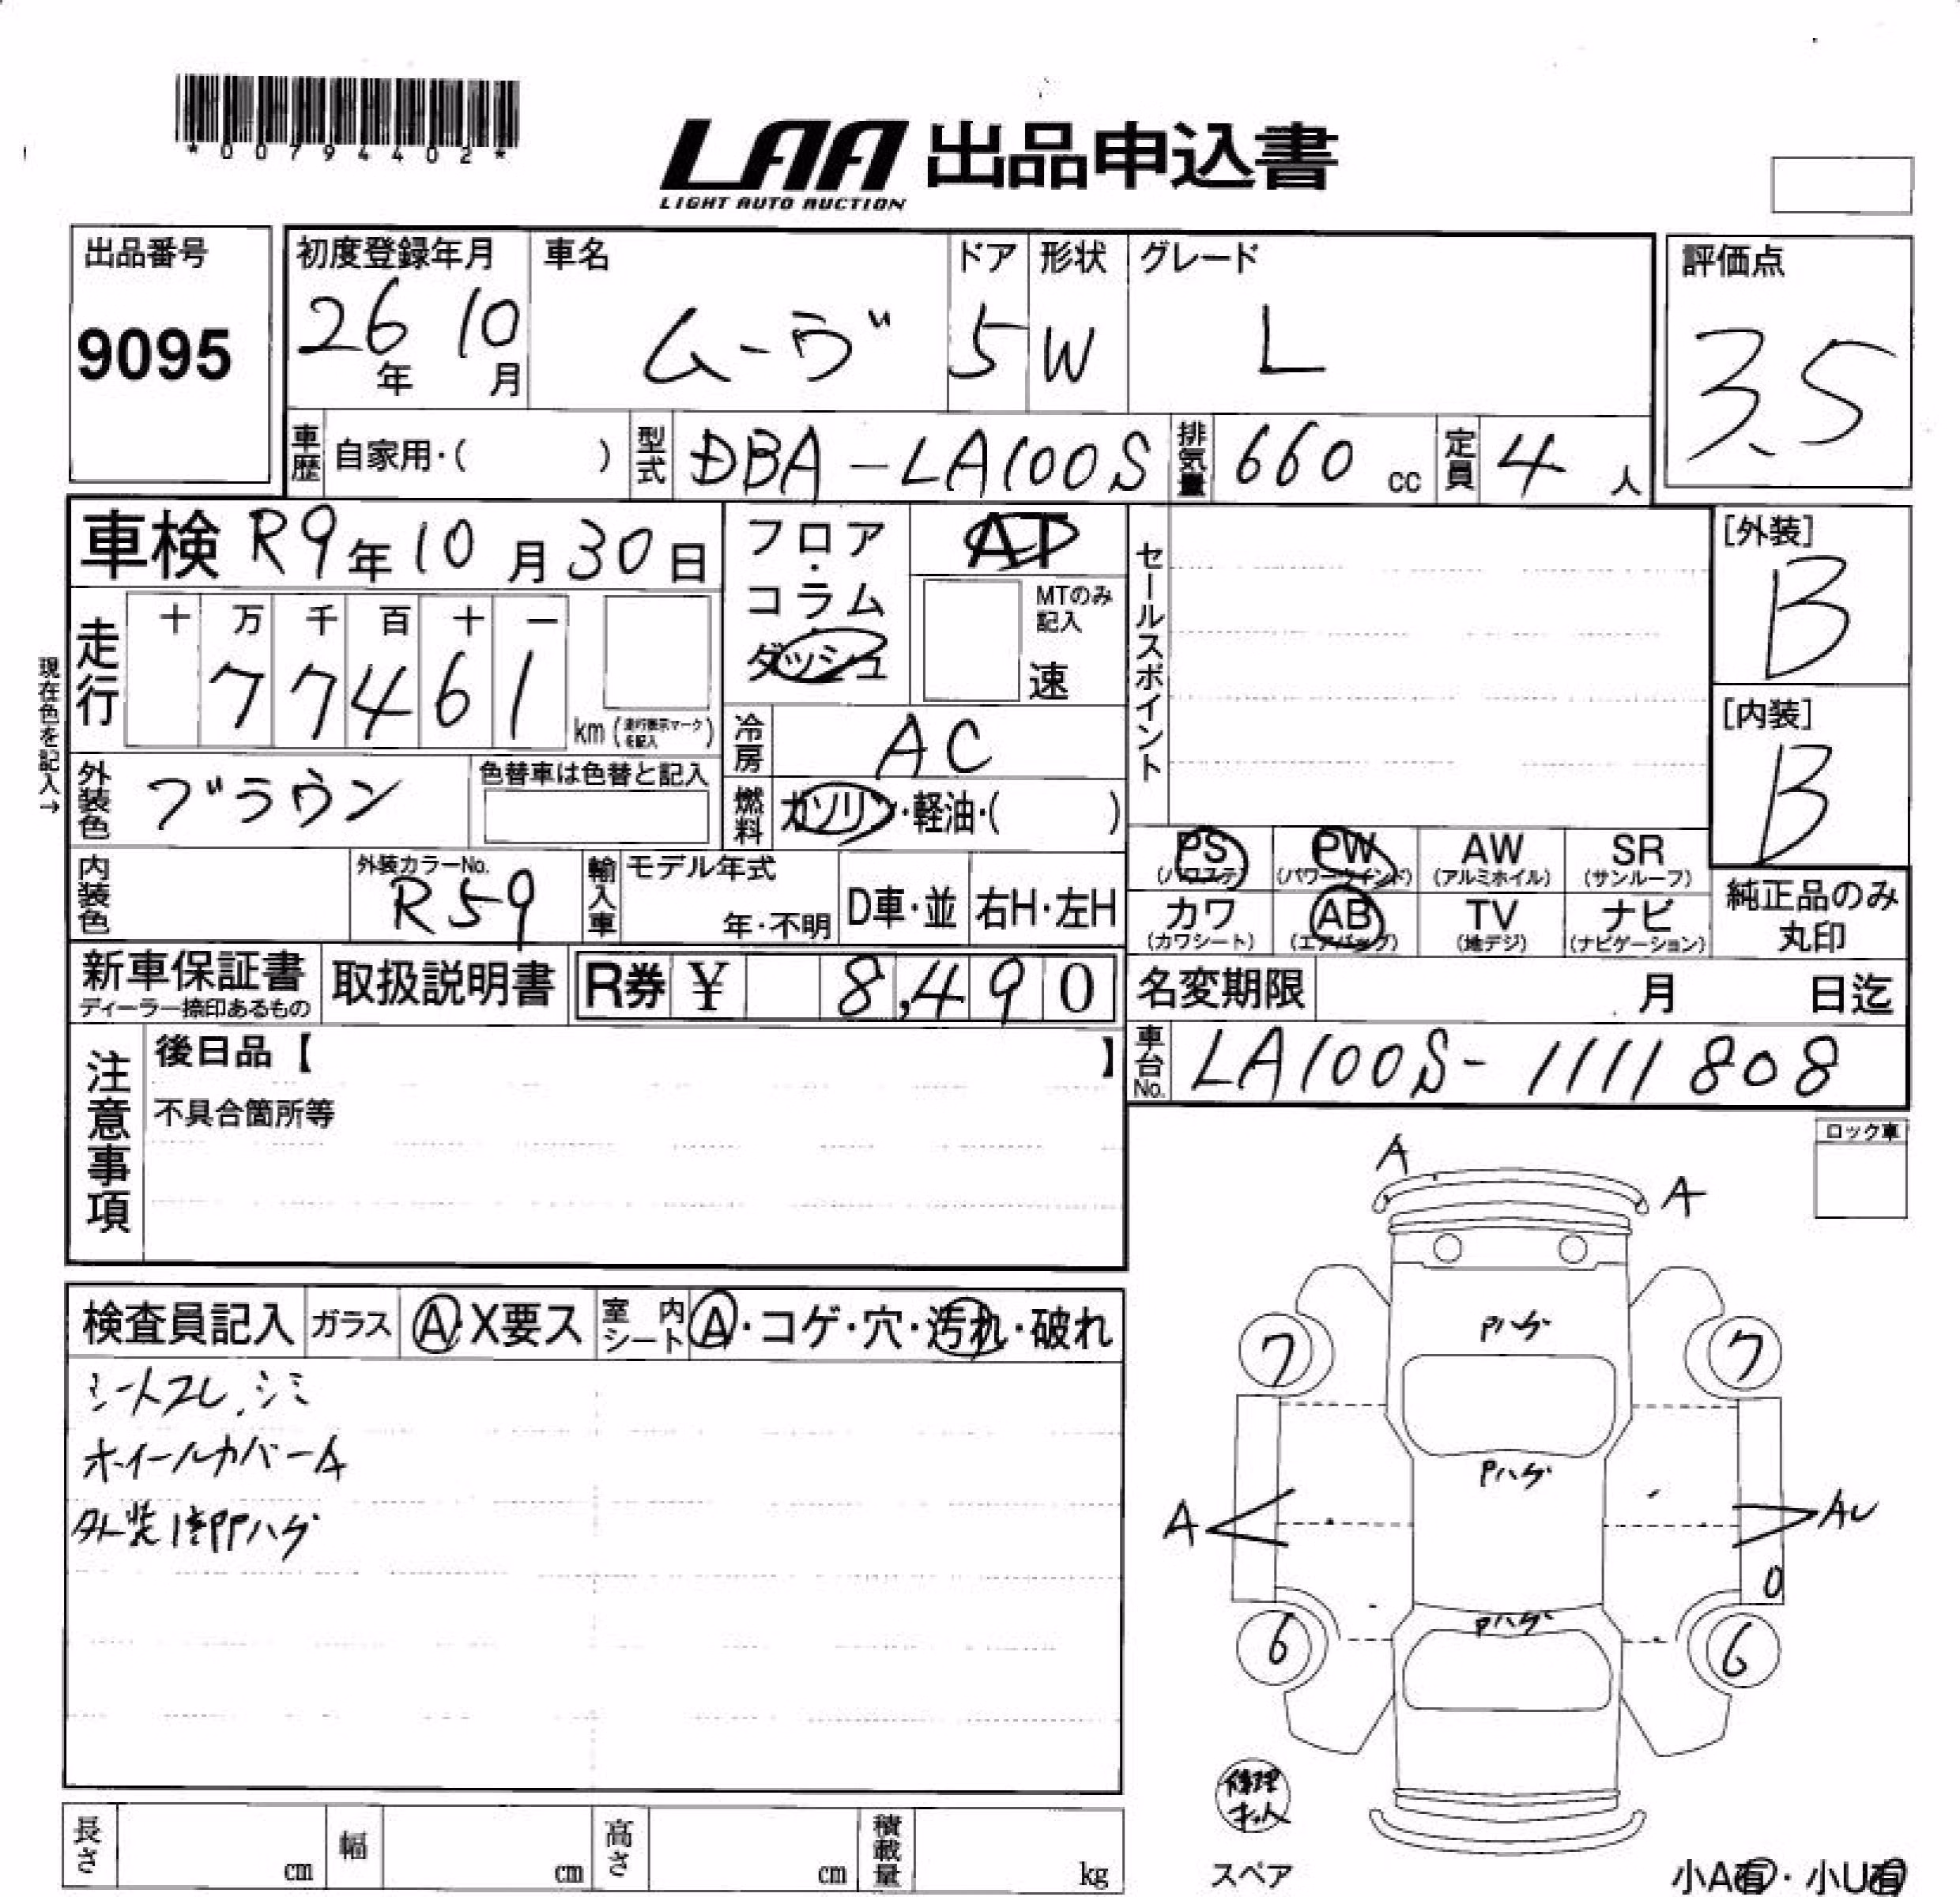 *00794402*
LAA 出品申込書
LIGHT AUTO AUCTION
出品番号
9095
初度登録年月
26年 10月
車名
ムーヴ
ドア
5
形状
W
グレード
L
評価点
3.5
車歴 自家用・( )
型式 DBA-LA100S
排気量 660 cc
定員 4 人
車検 R9年10月30日
フロア・コラム・ダッシュ
AT
MTのみ記入
速
セールスポイント
[外装]
B
[内装]
B
現在色を記入→
走行
十 万 千 百 十 一
7 7 4 6 1
km (走行表示マークを記入)
冷房 AC
外装色 ブラウン
色替車は色替と記入
燃料 ガソリン・軽油・( )
内装色
外装カラーNo.
R59
輸入車
モデル年式
年・不明
D車・並
右H・左H
PS (パワステ)
PW (パワーウインド)
AW (アルミホイル)
SR (サンルーフ)
カワ (カワシート)
AB (エアバッグ)
TV (地デジ)
ナビ (ナビゲーション)
純正品のみ丸印
新車保証書
ディーラー捺印あるもの
取扱説明書
R券 ¥ 8,490
名変期限 月 日迄
車台No. LA100S-1111808
注意事項
後日品【 】
不具合箇所等
ロック車
A
A
検査員記入
ガラス A・X要ス
室内シート A・コゲ・穴・汚れ・破れ
シートスレ、シミ
ホイールカバーA
外装1部Pハゲ
Pハゲ
7
7
Pハゲ
A
AU
0
Pハゲ
6
6
修理キット
スペア
長さ cm
幅 cm
高さ cm
積載量 kg
小A有・小U有